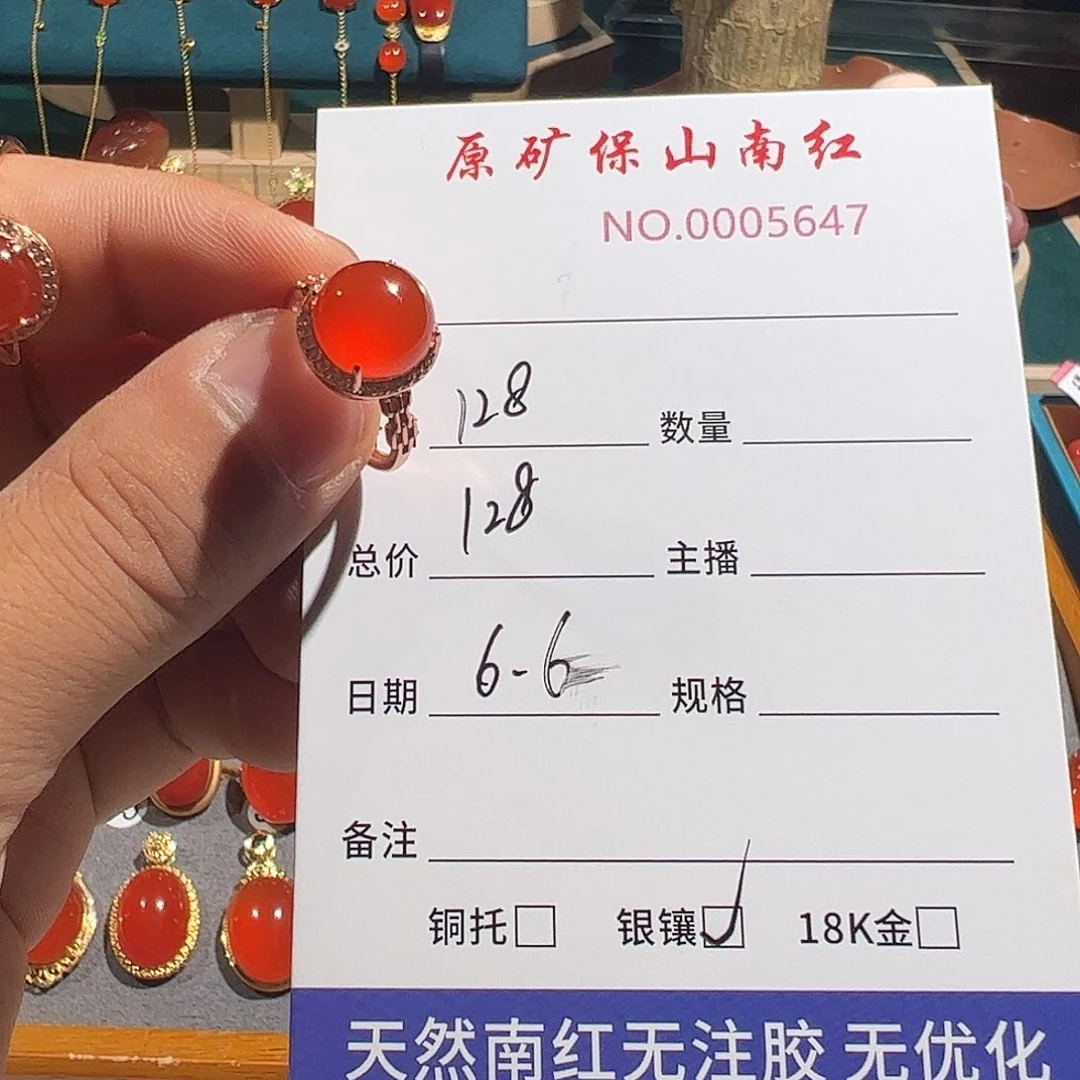 原矿保山南红
NO.0005647
128 数量
总价 128 主播
日期 6-6 规格
备注
铜托 银镶 18K金
天然南红无注胶 无优化